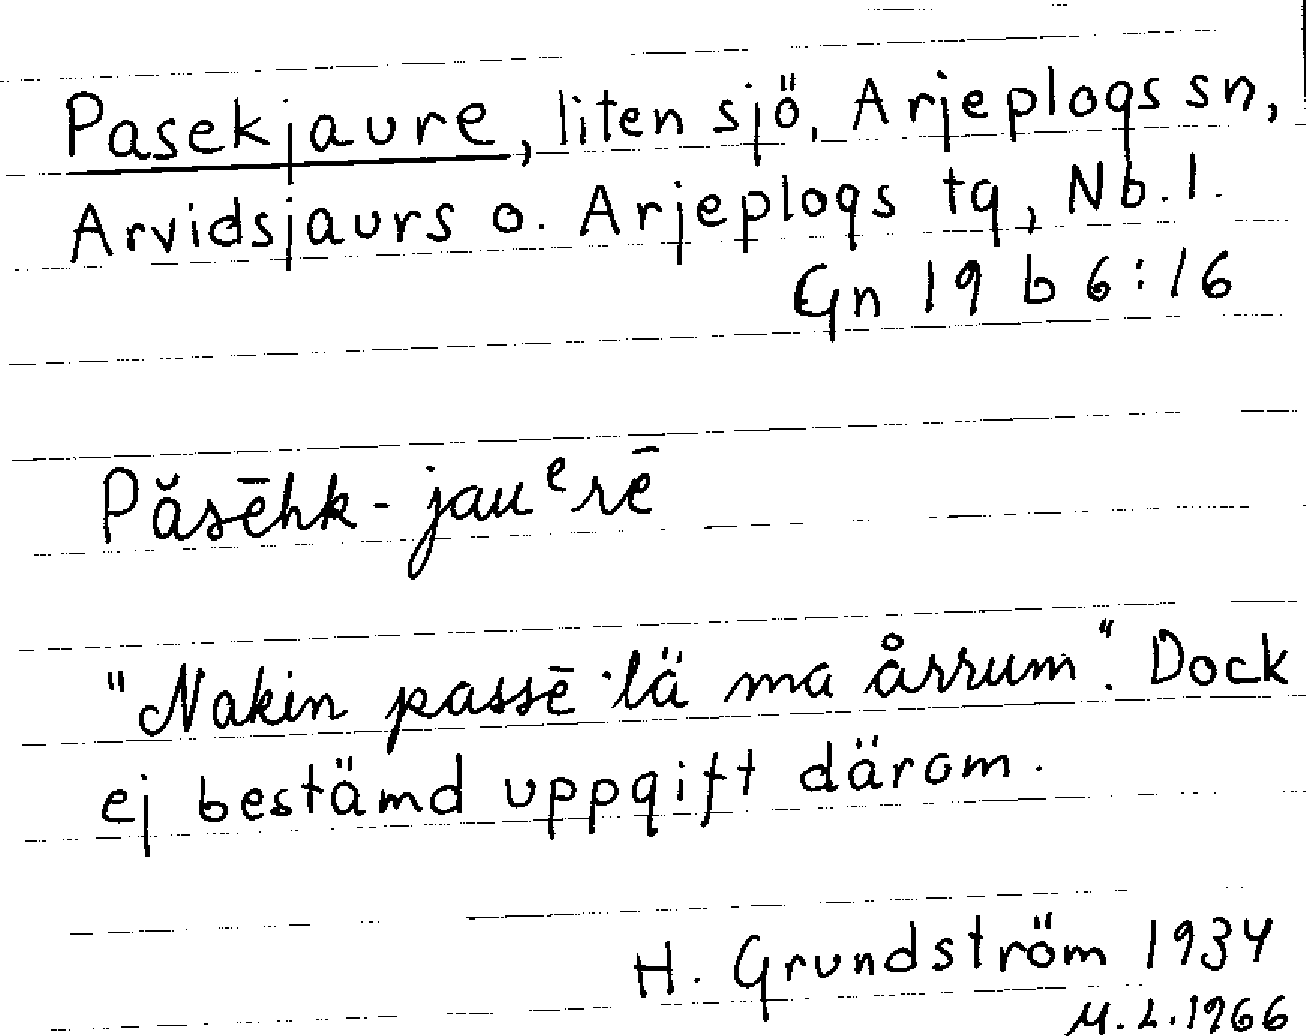 Pasekjaure, liten sjö, Arjeplogs sn,
Arvidsjaurs o. Arjeplogs tg, Nb. l.
Gn 19 b 6:16
Påsēhk-jauᵉrē
"Nakin passē ˈlä ma årrum". Dock
ej bestämd uppgift därom.
H. Grundström 1934
M.L.1966